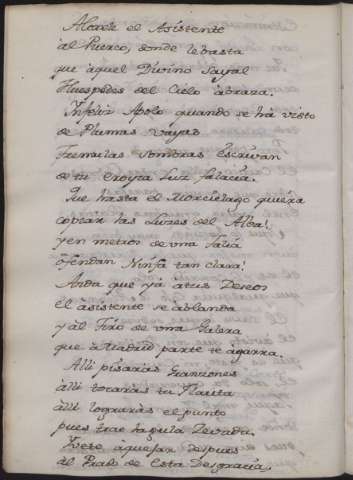 Alcance el Asistente
al Puerco, donde le basta
que aquel Divino Sayal
Huespedes del Cielo abraza.
Infeliz Apolo quando se há visto
de Plumas
Tremulas Sombras escrivan
de tu Luz
Que hasta el Morcielago quiera
copiar las Luzes del Alba!
y en metros de una
ofendan Ninfa tan clara!
Anda que yá átus Deseos
el ásistente se ablanda
y ál Trio de una Galera
que áMadrid parte te agarra.
Alli pisarás Granzones
álli tocarás tu Flauta
álli lograrás el punto
pues trae la
Vete áquejar despues
ál Prado de Esta Desgracia,